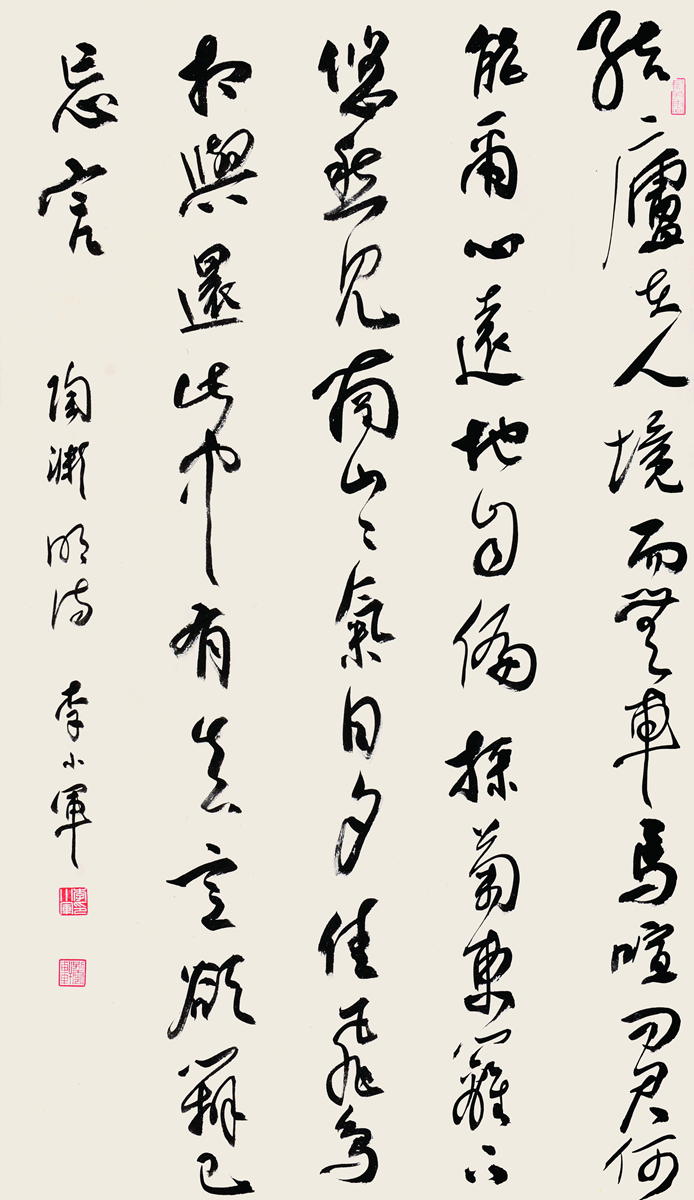 結廬在人境而無車馬喧問君何
能爾心遠地自偏採菊東籬下
悠然見南山〻氣日夕佳飛鳥
相與還此中有真意欲辨已
忘言
陶淵明詩 李小軍